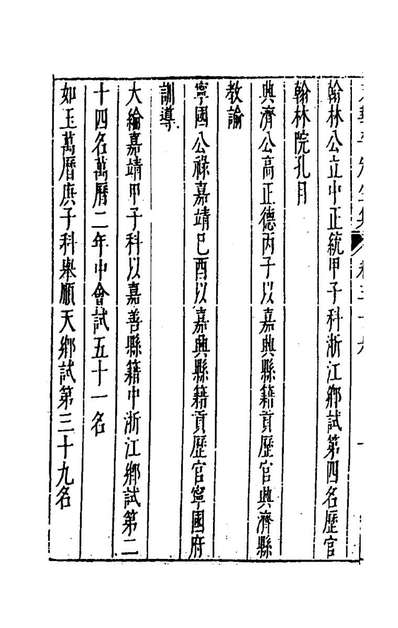 翰林公立中正統甲子科浙江鄉試第四名歷官
翰林院孔目
興濟公高正德丙子以嘉興縣籍貢歷官興濟縣
教諭
寧國公祿嘉靖己酉以嘉興縣籍貢歷官寧國府
訓導
大綸嘉靖甲子科以嘉善縣籍中浙江鄉試第二
十四名萬曆二年中會試五十一名
如玉萬曆庚子科舉順天鄉試第三十九名